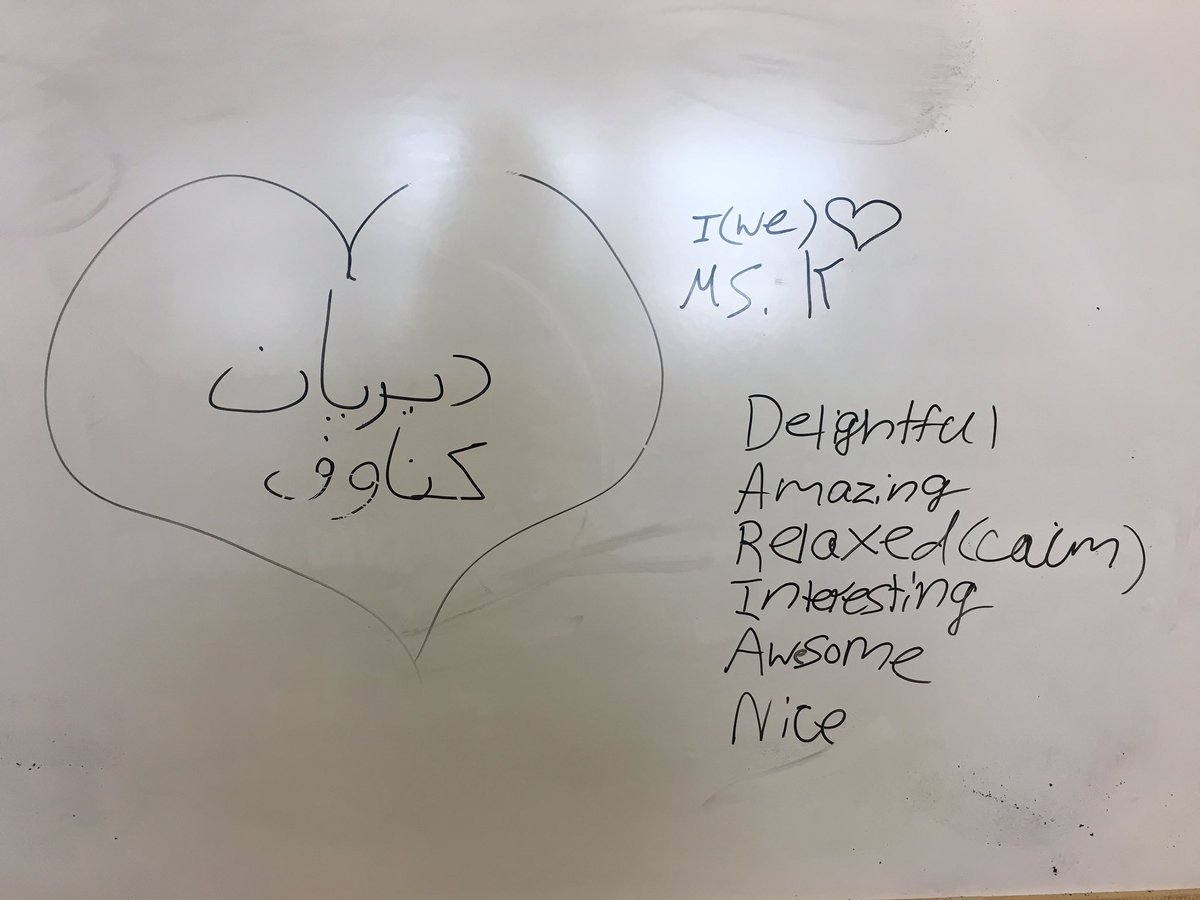 ديريان
كناوف
I(we) ♡
MS. K
Delightful
Amazing
Relaxed (calm)
Interesting
Awsome
Nice